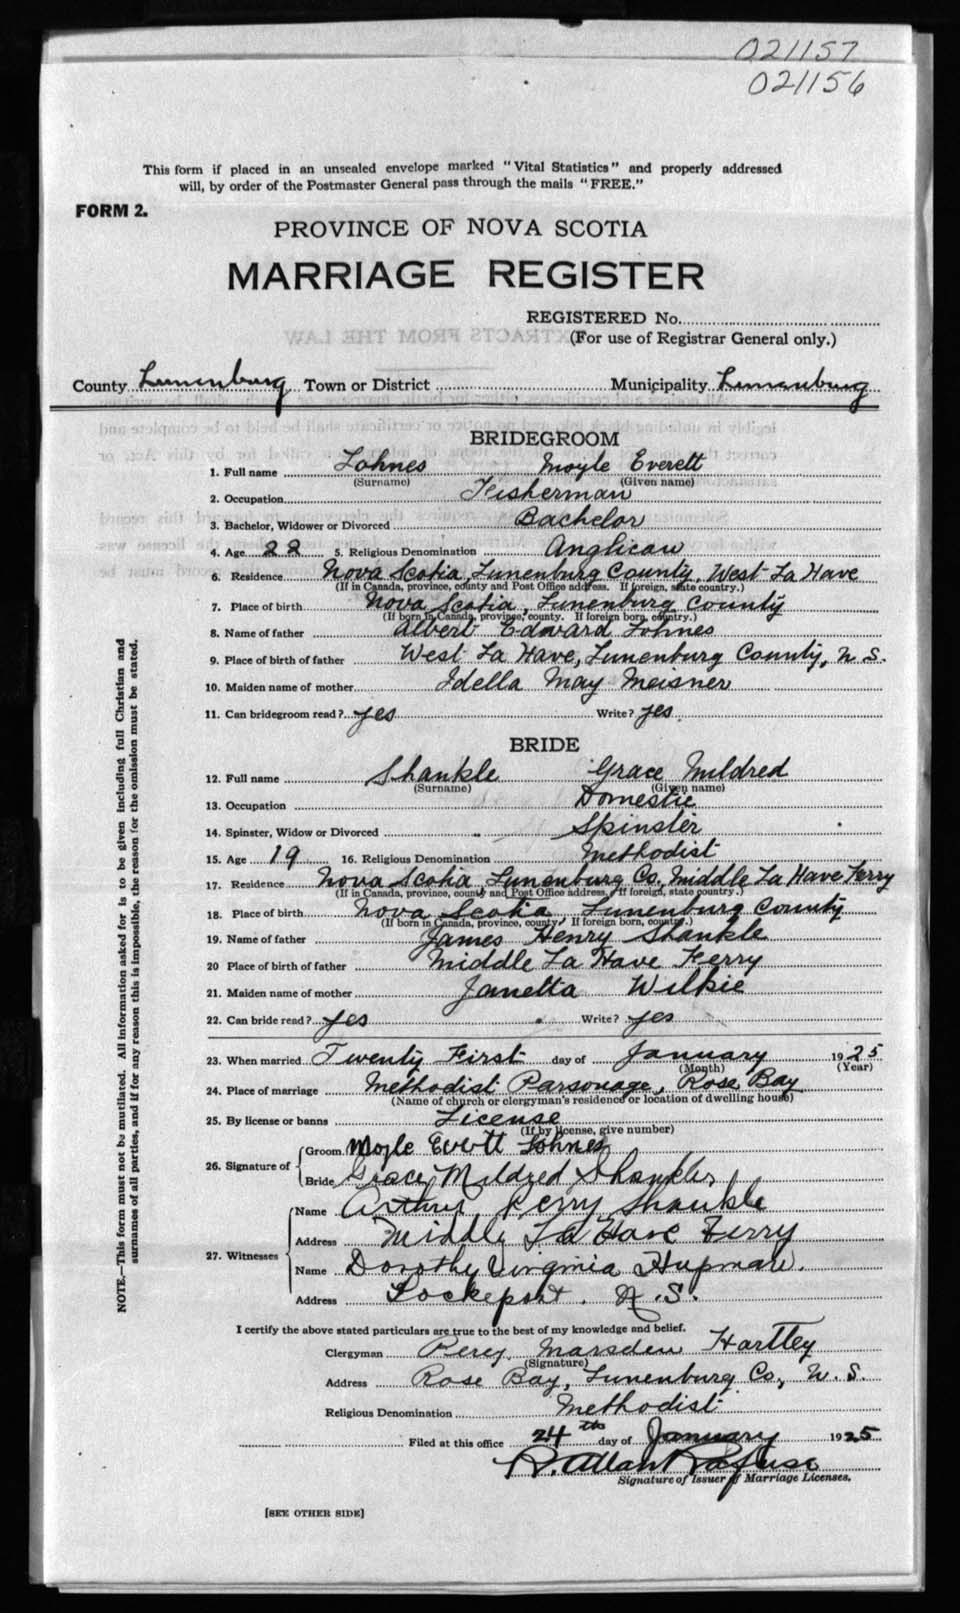 021157
021156
This form if placed in an unsealed envelope marked "Vital Statistics" and properly addressed
will, by order of the Postmaster General pass through the mails "FREE."
FORM 2.
PROVINCE OF NOVA SCOTIA
MARRIAGE REGISTER
REGISTERED No.
(For use of Registrar General only.)
County Lunenburg Town or District Municipality Lunenburg
BRIDEGROOM
1. Full name Lohnes Moyle Everett
(Surname) (Given name)
2. Occupation Fisherman
3. Bachelor, Widower or Divorced Bachelor
4. Age 22 5. Religious Denomination Anglican
6. Residence Nova Scotia, Lunenburg County, West La Have
(If in Canada, province, county and Post Office address. If foreign, state country.)
7. Place of birth Nova Scotia, Lunenburg County
(If born in Canada, province, county. If foreign born, country.)
8. Name of father Albert Edward Lohnes
9. Place of birth of father West La Have, Lunenburg County, N S.
10. Maiden name of mother Idella May Meisner
11. Can bridegroom read? yes Write? yes.
BRIDE
12. Full name Shankle Grace Mildred
(Surname) (Given name)
13. Occupation Domestic
14. Spinster, Widow or Divorced Spinster
15. Age 19 16. Religious Denomination Methodist
17. Residence Nova Scotia Lunenburg Co, Middle La Have Ferry
(If in Canada, province, county and Post Office address, If foreign, state country.)
18. Place of birth Nova Scotia Lunenburg County
(If born in Canada, province, county. If foreign born, country.)
19. Name of father James Henry Shankle
20 Place of birth of father Middle La Have Ferry
21. Maiden name of mother Janetta Wilkie
22. Can bride read? yes Write? yes
23. When married Twenty First day of January 1925
(Month) (Year)
24. Place of marriage Methodist Parsonage, Rose Bay
(Name of church or clergyman's residence or location of dwelling house)
25. By license or banns License
(If by license, give number)
26. Signature of Groom Moyle Evertt Lohnes
Bride Grace Mildred Shankle
27. Witnesses Name Arthur Perry Shankle
Address Middle La Have Ferry
Name Dorothy Virginia Hupman.
Address Lockeport. N.S.
I certify the above stated particulars are true to the best of my knowledge and belief.
Clergyman Percy Marsden Hartley
(Signature)
Address Rose Bay, Lunenburg Co, N. S.
Religious Denomination Methodist
Filed at this office 24th day of January 1925
R. Allan Rafuse
Signature of Issuer of Marriage Licenses.
[SEE OTHER SIDE]
NOTE.—This form must not be mutilated. All information asked for is to be given including full Christian and
surnames of all parties, and if for any reason this is impossible, the reason for the omission must be stated.